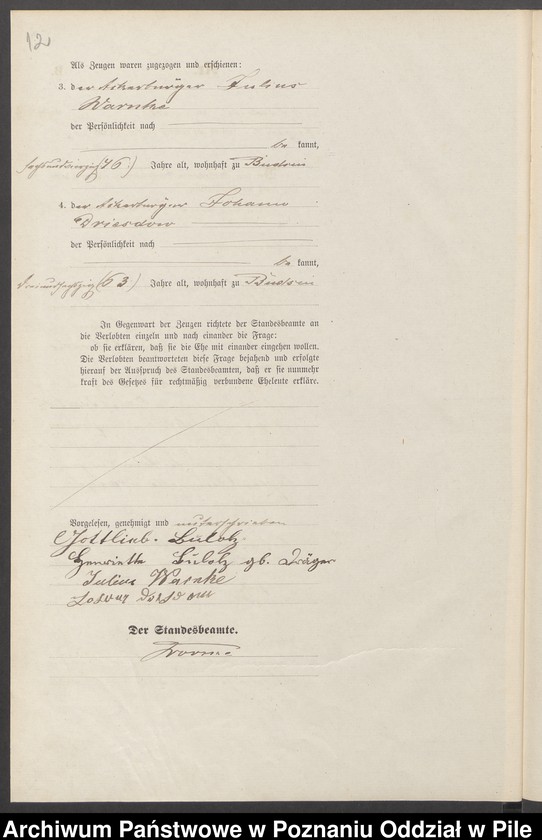 12
Als Zeugen waren zugezogen und erschienen:
3. der Ackerbürger Julius
Warnke
der Persönlichkeit nach
be kannt,
sechsundvierzig (46) Jahre alt, wohnhaft zu Budsin
4. der Ackerbürger Johann
Driesdow
der Persönlichkeit nach
be kannt,
dreiundsechzig (63) Jahre alt, wohnhaft zu Budsin
In Gegenwart der Zeugen richtete der Standesbeamte an
die Verlobten einzeln und nach einander die Frage:
ob sie erklären, daß sie die Ehe mit einander eingehen wollen.
Die Verlobten beantworteten diese Frage bejahend und erfolgte
hierauf der Ausspruch des Standesbeamten, daß er sie nunmehr
kraft des Gesetzes für rechtmäßig verbundene Eheleute erkläre.
Vorgelesen, genehmigt und unterschrieben
Gottlieb Bülotz
Henriette Bülotz gb. Dräger
Julius Warnke
Der Standesbeamte.
Archiwum Państwowe w Poznaniu Oddział w Pile